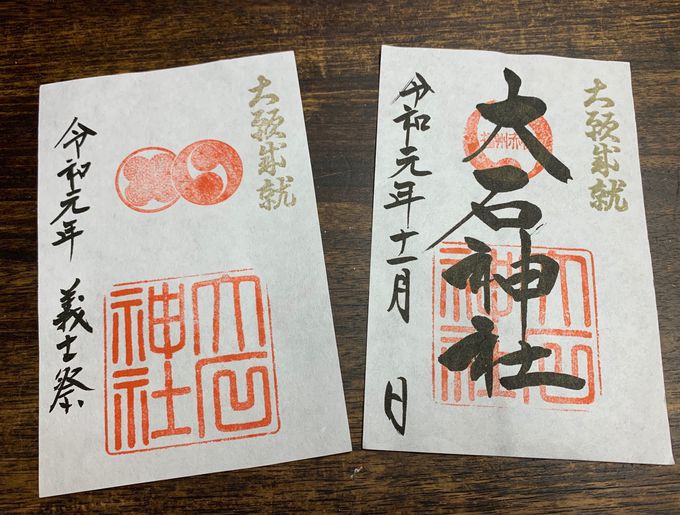 大願成就
大石神社
令和元年 義士祭
大願成就
播州赤穂
大石神社
大石神社
令和元年十一月 日